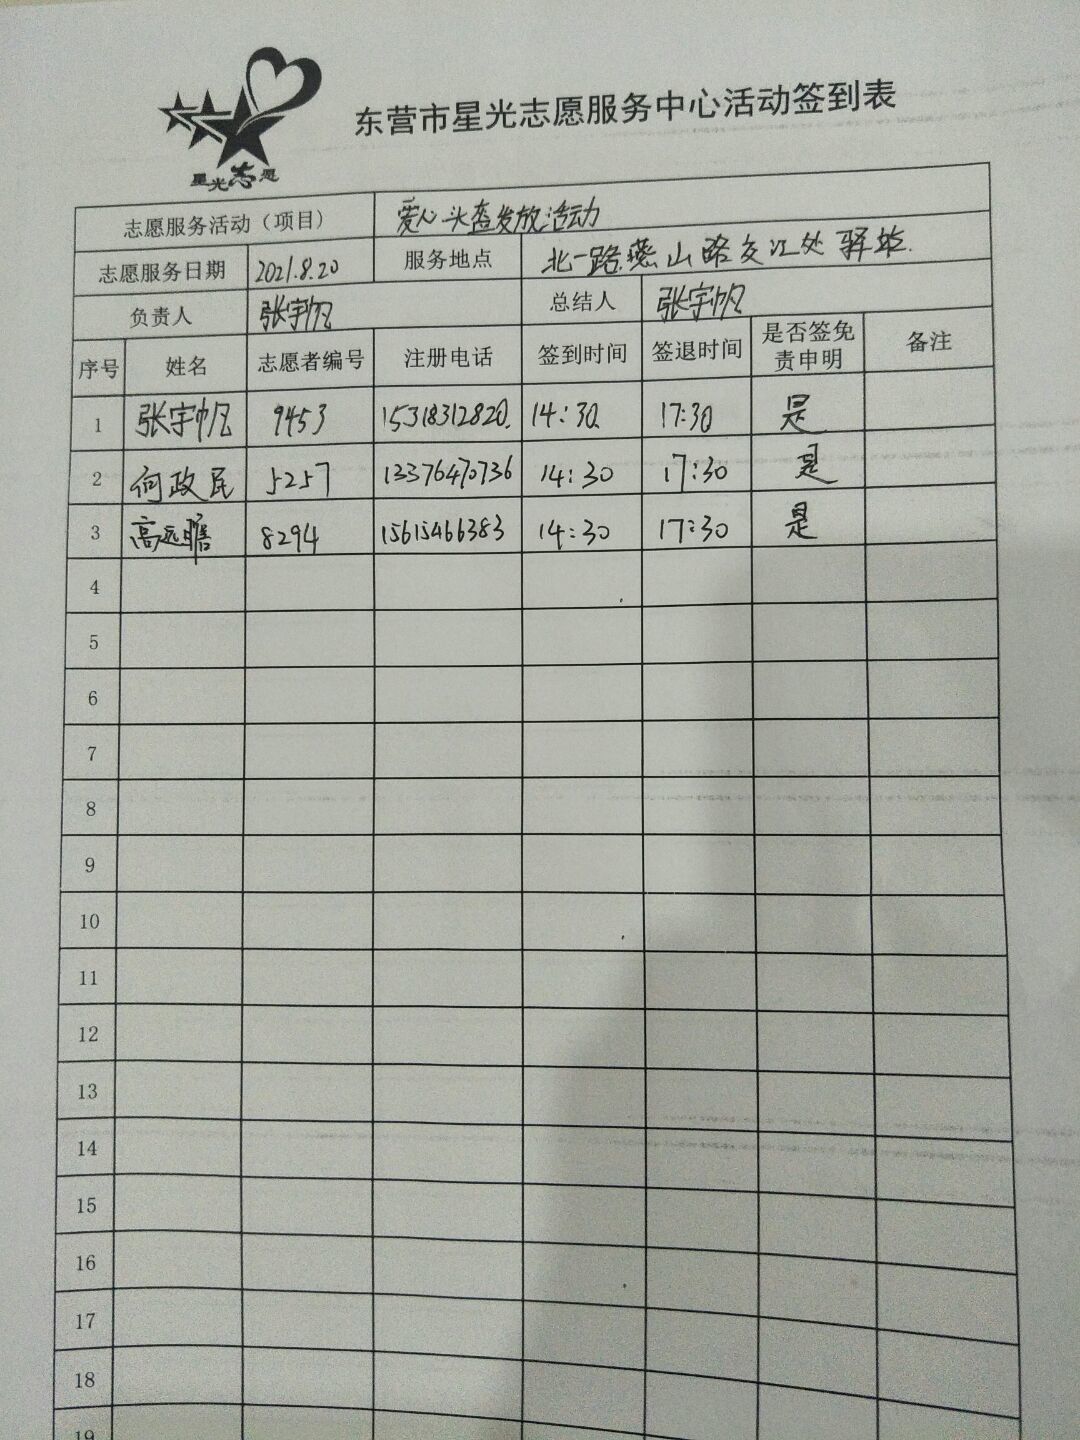 星光志愿
东营市星光志愿服务中心活动签到表
志愿服务活动（项目） 爱心头盔发放活动
志愿服务日期 2021.8.20 服务地点 北一路燕山路交汇处驿站.
负责人 张宇帆 总结人 张宇帆
序号 姓名 志愿者编号 注册电话 签到时间 签退时间 是否签免责申明 备注
1 张宇帆 9453 15318312820. 14:30 17:30 是
2 何政民 5257 13376470736 14:30 17:30 是
3 高远瞻 8294 15615466383 14:30 17:30 是
4
5
6
7
8
9
10
11
12
13
14
15
16
17
18
19